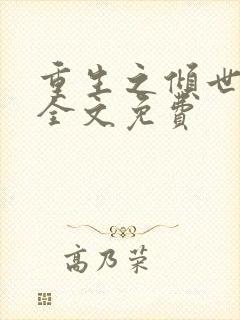 重生之倾世
全文免費
高乃荣